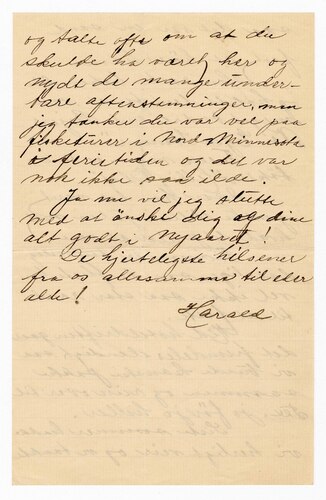 og talte ofte om at du
skulde ha været her og
nydt de mange under-
bare aftenstemninger, men
jeg tænker du var vel paa
fisketurer i Nord-Minnesota
i ferietiden og det var
nok ikke saa ilde.
Ja nu vil jeg slutte
med at ønske dig og dine
alt godt i Nyaaret!
De hjerteligste hilsener
fra os allesamma til eder
alle!
Harald